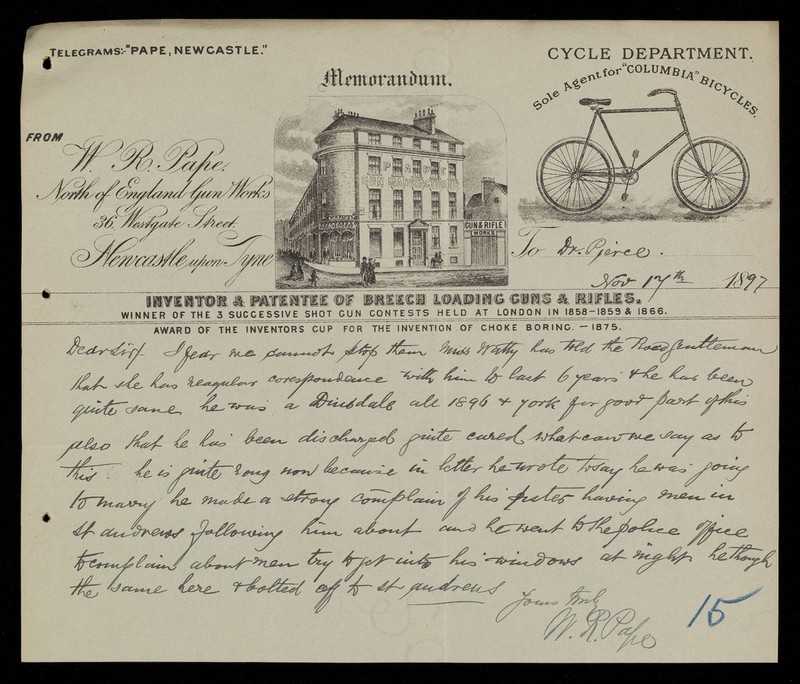 TELEGRAMS:-"PAPE, NEWCASTLE."
CYCLE DEPARTMENT.
Sole Agent for "COLUMBIA" BICYCLES.
Memorandum.
FROM
W. R. Pape,
North of England Gun Works
36, Westgate Street
Newcastle upon Tyne
PAPE
GUN & RIFLE
WORKS
To Dr. Pierce.
Nov 17th 1897
INVENTOR & PATENTEE OF BREECH LOADING GUNS & RIFLES.
WINNER OF THE 3 SUCCESSIVE SHOT GUN CONTESTS HELD AT LONDON IN 1858-1859 & 1866.
AWARD OF THE INVENTORS CUP FOR THE INVENTION OF CHOKE BORING. - 1875.
Dear Sir. I fear we cannot stop them Miss has told the Gentleman
that she has reagular corespondence with him to last 6 years & he has been
quite sane he was a Dinsdale all 1896 & york for good part of this
also that he has been discharged quite cured what can we say as to
this. he is quite rong now because in letter he wrote to say he was going
to marry he made a strong complain of his sister having men in
St andrews following him about and he went to the police office
to complain about men try to get into his windows at night he though
the same here & bolted of to St andrews
Yours truly
W. R. Pape
15